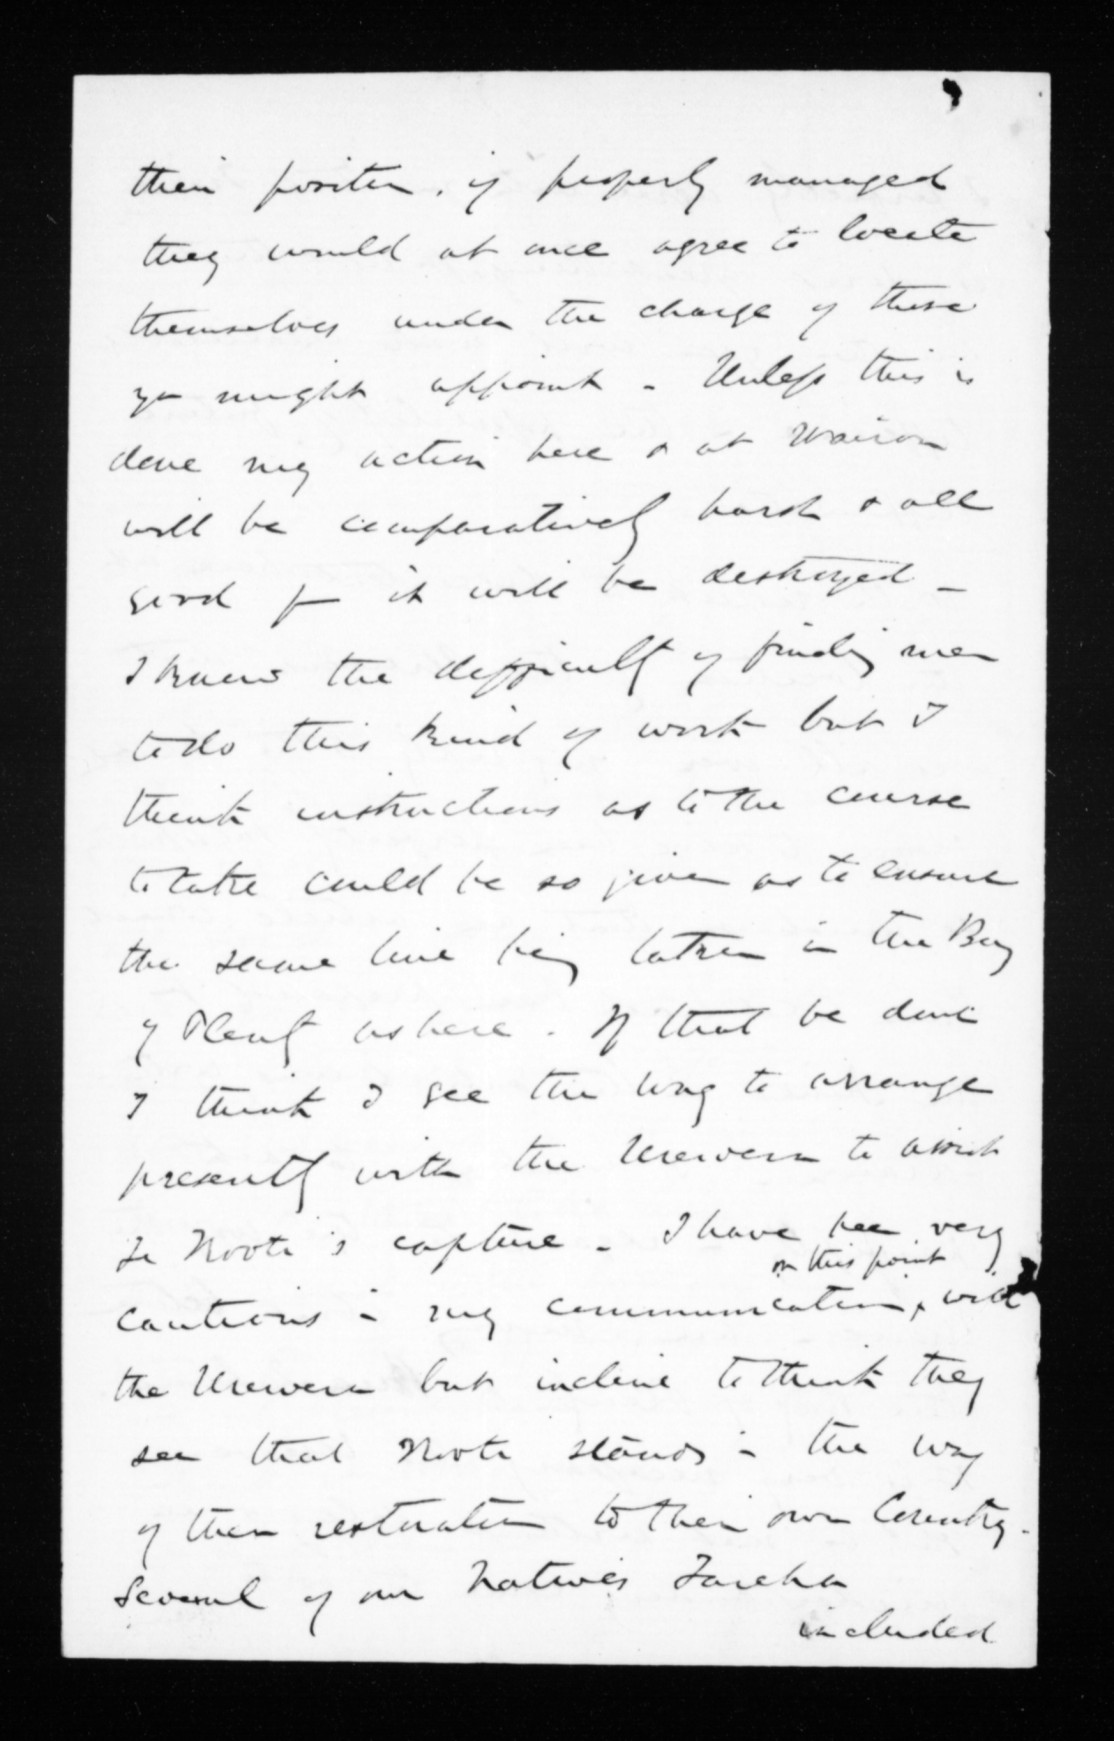 their position. if properly managed
they would at once agree to locate
themselves under the charge of those
you might appoint - Unless this is
done my action here & at Wairoa
will be comparatively harsh & all
good fr it will be destroyed -
I know the difficulty of finding men
to do this kind of work but I
think instructions as to the course
to take could be so given as to ensure
the same line being taken in the Bay
of Plenty as here. If that be done
I think I see the way to arrange
presently with the Urewera to assist
in Kooti's capture - I have been very
on this point
cautious in my communication, with
the Urewera but incline to think they
see that Kooti stands in the way
of their restoration to their own Country.
Several of our Natives Tareha
included